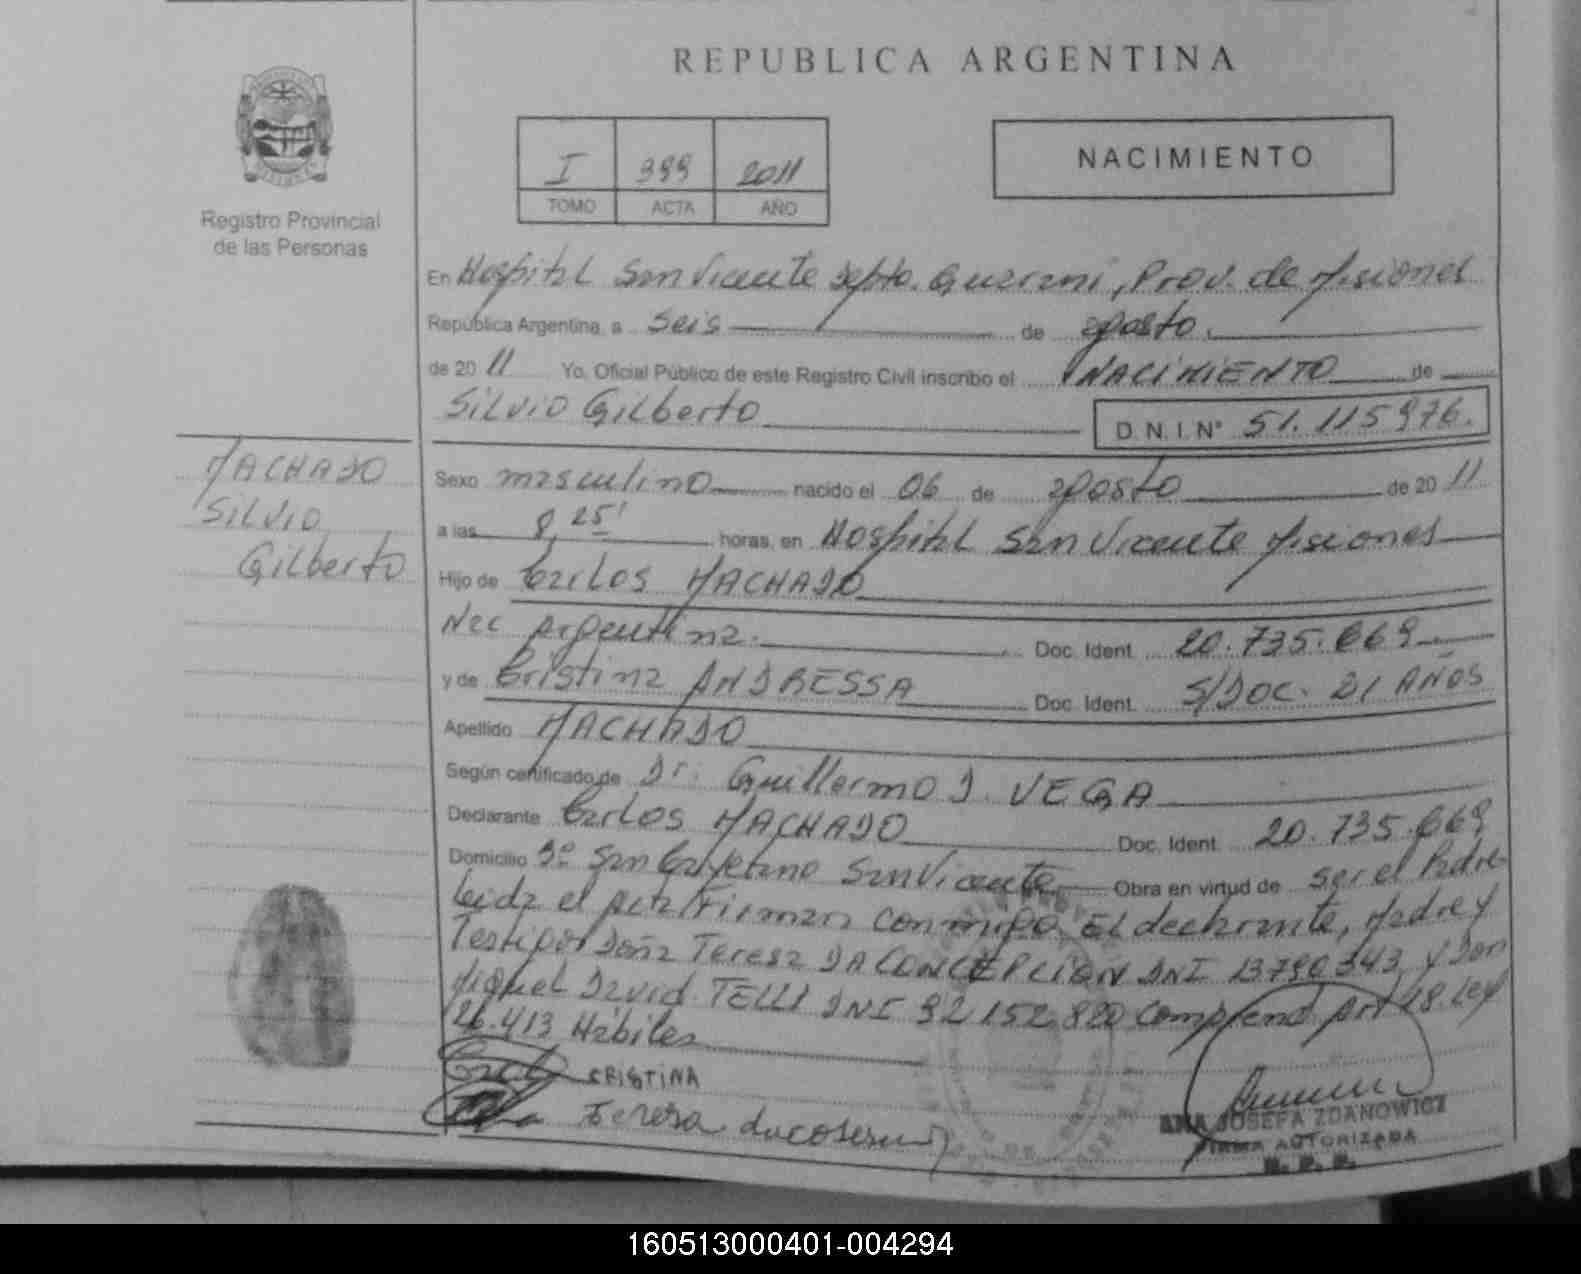 REPUBLICA ARGENTINA
I 399 2011
TOMO ACTA AÑO
NACIMIENTO
Registro Provincial
de las Personas
En Hospital San Vicente Depto. Guarani, Prov. de Misiones
República Argentina, a seis de agosto.
de 2011 Yo, Oficial Público de este Registro Civil inscribo el NACIMIENTO de
Silvio Gilberto
D.N.I. N° 51.115.976.
MACHADO
Silvio
Gilberto
Sexo masculino nacido el 06 de agosto de 2011
a las 8,25' horas, en Hospital San Vicente Misiones
Hijo de Carlos MACHADO
Nac Argentina. Doc. Ident. 20.735.669
y de Cristina ANDRESSA Doc. Ident. S/DOC. 21 AÑOS
Apellido MACHADO
Según certificado de Dr. Guillermo D. VEGA
Declarante Carlos MACHADO Doc. Ident. 20.735.669
Domicilio Bº San Cayetano San Vicente Obra en virtud de ser el Padre
Leida el acta Firman conmigo El declarante, Madre y
Testigos Doña Teresa DA CONCEPCION DNI 13790343 y Don
Miguel David TELLI DNI 32152820 Comprend Art 18. Ley
26.413 Hábiles
CRISTINA
Teresa
ANA JOSEFA ZDANOWICZ
FIRMA AUTORIZADA
R. P. P.
160513000401-004294